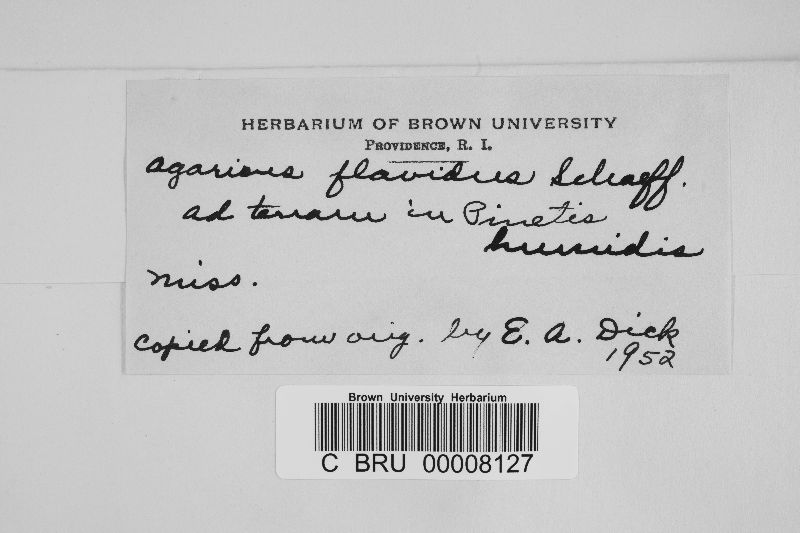 HERBARIUM OF BROWN UNIVERSITY
PROVIDENCE, R. I.
Agaricus flavidus Schaeff.
ad terram in Pinetis
humidis
Miss.
Copied from orig. by E. A. Dick
1952
Brown University Herbarium
C BRU 00008127